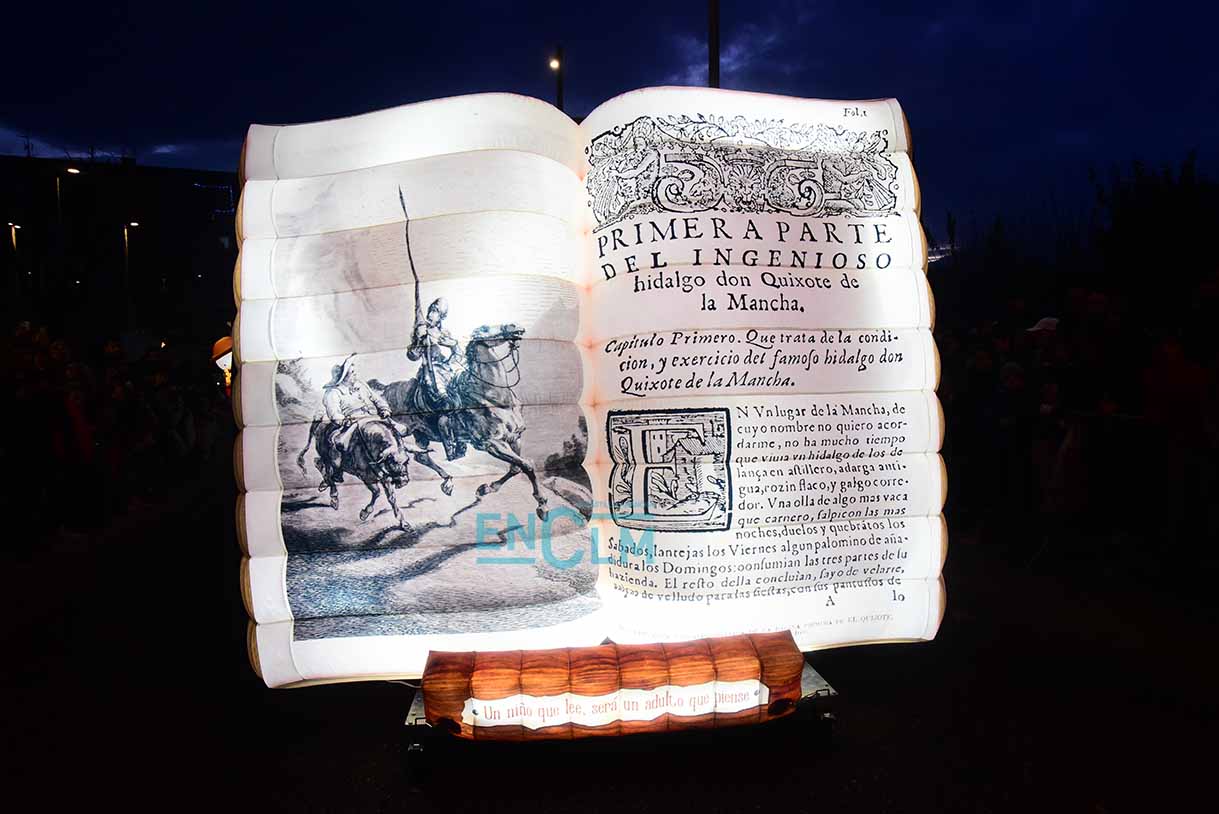 Fol.1
PRIMERA PARTE
DEL INGENIOSO
hidalgo don Quixote de
la Mancha.
Capitulo Primero. Que trata de la condi-
cion, y exercicio del famoſo hidalgo don
Quixote de la Mancha.
EN Vn lugar de la Mancha, de
cuyo nombre no quiero acor-
darme, no ha mucho tiempo
que viuia vn hidalgo de los de
lança en aſtillero, adarga anti-
gua, rozin flaco, y galgo corre-
dor. Vna olla de algo mas vaca
que carnero, ſalpicon las mas
noches, duelos y quebrãtos los
Sabados, lantejas los Viernes algun palomino de aña-
didura los Domingos: conſumian las tres partes de ſu
hazienda. El reſto della concluìan, ſayo de velarte,
calças de velludo para las fieſtas, con ſus pantuflos de
A lo
PRIMERA DE EL QUIJOTE.
ENCLM
Un niño que lee, será un adulto que piense